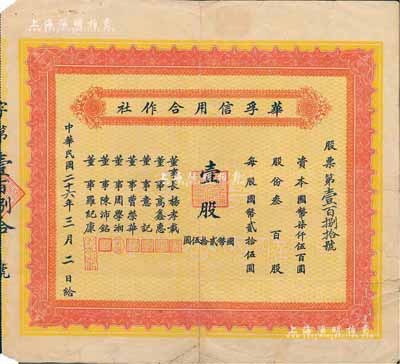 華孚信用合作社
股票第壹百捌拾號
資本國幣柒仟伍百圓
股份叁百股
每股國幣貳拾伍圓
壹股
國幣貳拾伍圓
董事長楊孝栽
董事高鑫惠
董事意記
董事曹榮華
董事周學湘
董事陳沛銘
董事羅紀康
中華民國二十六年三月二日給
字第壹百捌拾號